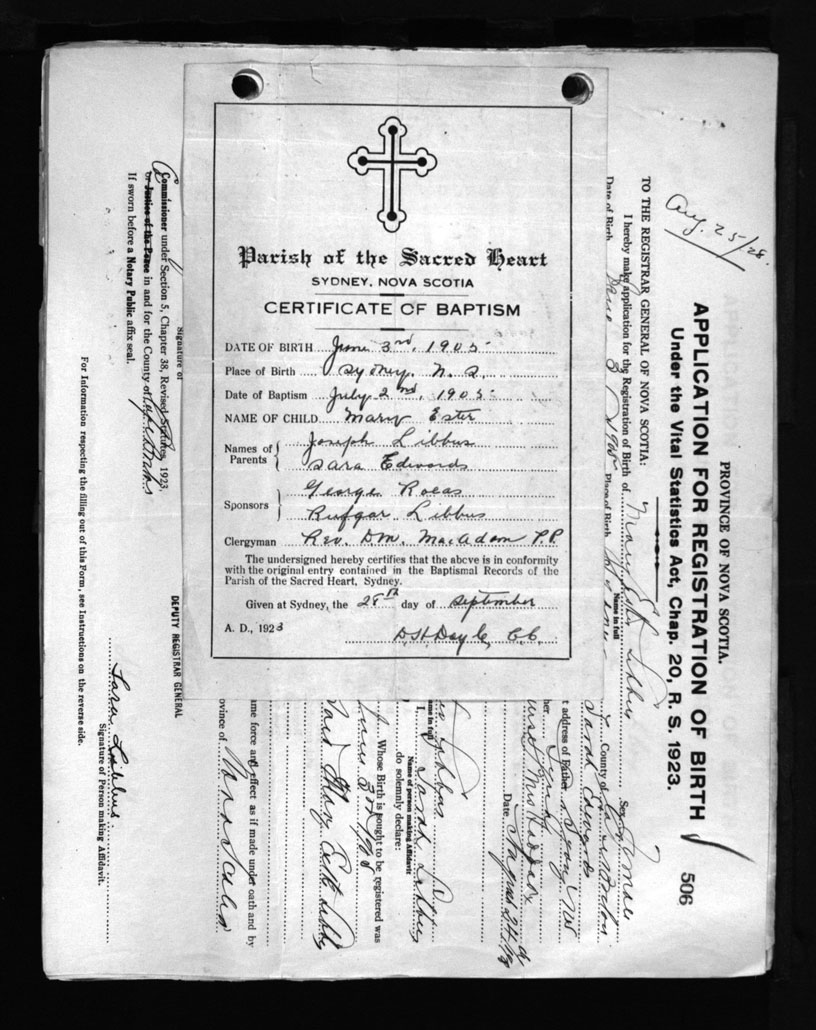 Parish of the Sacred Heart
SYDNEY, NOVA SCOTIA
CERTIFICATE OF BAPTISM
DATE OF BIRTH June 3rd, 1905
Place of Birth Sydney. N. S.
Date of Baptism July 2nd, 1905
NAME OF CHILD Mary Ester
Names of Parents Joseph Libbus
Sara Edwards
Sponsors George Roeas
Rufgar Libbus
Clergyman Rev. D.M. MacAdam P.P.
The undersigned hereby certifies that the above is in conformity
with the original entry contained in the Baptismal Records of the
Parish of the Sacred Heart, Sydney.
Given at Sydney, the 28th day of September
A. D., 1928
Aug. 25/28.
PROVINCE OF NOVA SCOTIA.
APPLICATION FOR REGISTRATION OF BIRTH
506
Under the Vital Statistics Act, Chap. 20, R. S. 1923.
TO THE REGISTRAR GENERAL OF NOVA SCOTIA:
I hereby make application for the Registration of Birth of Mary Libbus Sex Female
Name in full
Date of Birth June 3rd 1905 Place of Birth County of
Sarah Edwards
t address of Father
her
Date August 24
ame in full
I, Sarah Libbus
Name of person making Affidavit
do solemnly declare:
Whose Birth is sought to be registered was
June 3rd 1905
Said Mary
ame force and effect as if made under oath and by
ovince of Nova Scotia
DEPUTY REGISTRAR GENERAL
Signature of
Commissioner under Section 5, Chapter 38, Revised Statutes, 1923,
or Justice of the Peace in and for the County of Cape Breton
If sworn before a Notary Public affix seal.
Sara Libbus
Signature of Person making Affidavit.
For Information respecting the filling out of this Form, see Instructions on the reverse side.